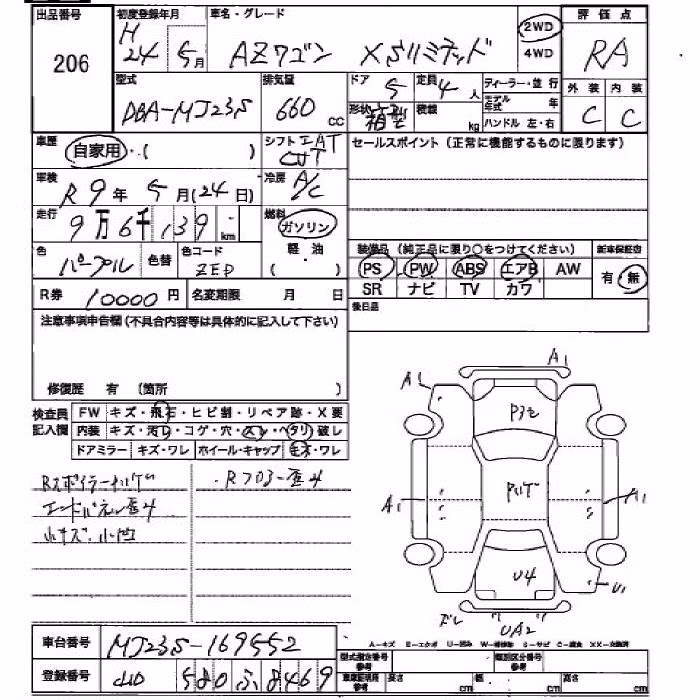 出品番号 初度登録年月 車名・グレード 2WD 評価点
206 H 24年 5月 AZワゴン XSリミテッド 4WD RA
型式 排気量 ドア 5 定員 4人 ディーラー・並行 外装 内装
DBA-MJ23S 660cc 形状 箱型 積載 kg モデル年式 年 ハンドル 左・右 C C
車歴 自家用・( ) シフト CVT セールスポイント(正常に機能するものに限ります)
車検 R9年5月(24日) 冷房 A/C
走行 9万6千139km 燃料 ガソリン
軽油
( )
色 パープル 色替 色コード ZED 装備品(純正品に限り○をつけてください) 新車保証書
PS PW ABS エアB AW 有・無
R券 10000円 名変期限 月 日 SR ナビ TV カワ
注意事項申告欄(不具合内容等は具体的に記入して下さい) 後日品
修復歴 有 (箇所 )
検査員記入欄 FW キズ・飛石・ヒビ割・リペア跡・X要
内装 キズ・汚れ・コゲ・穴・スレ・ヘタリ・破レ
ドアミラー キズ・ワレ ホイール・キャップ キズ・ワレ
A1 A1
P3
A1 A1
U4 U1
UA2
エンドパネル歪み
小キズ・小凹
A-キズ E-エクボ U-凹み W-補修跡 S-サビ C-腐食 XX-交換済
車台番号 MJ23S-169552
型式指定番号 参考 類別区分番号 参考
登録番号 580 ふ 8469
車庫証明用 参考 長さ cm 幅 cm 高さ cm